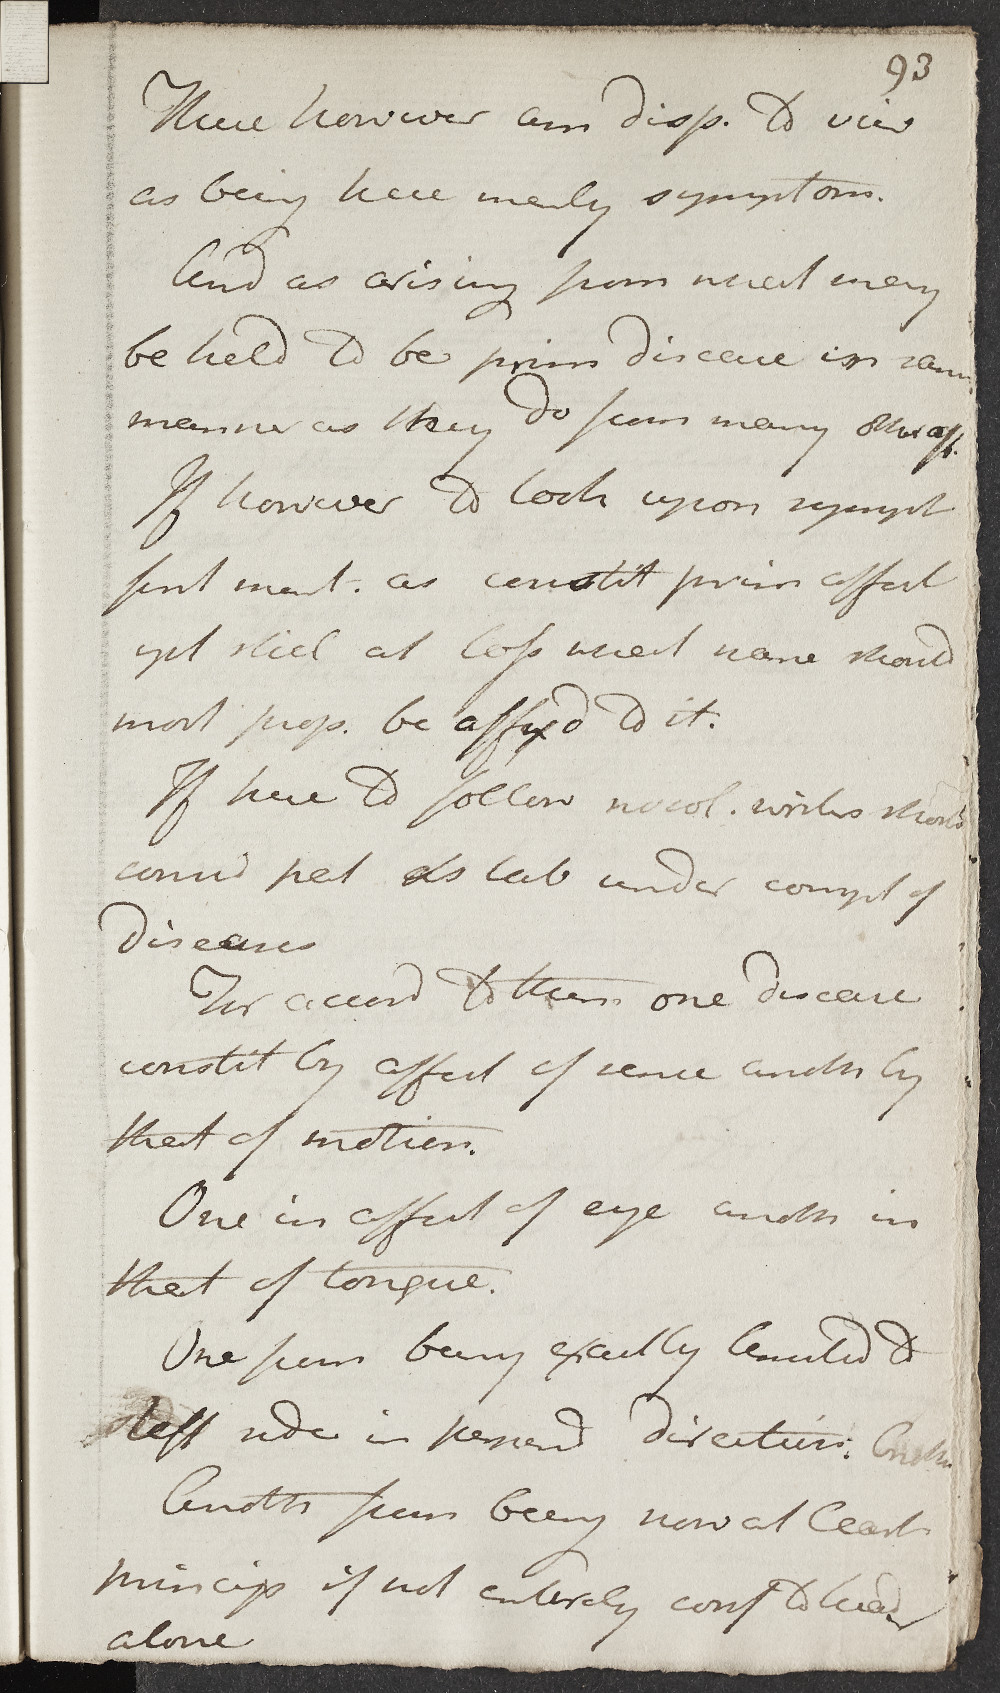 93
These however am disp. to view
as being here merly symptom.
And as arising from what may
be held to be prim disease in same
manner as they do from many other aff.
If however to look upon sympt
pnt ment. as constit prim affect
yet still at loss what name should
most prop. be affixd to it.
If here to follow nosol. writers should
consid pat as lab under compl of
diseases
For accord to them one disease
constit by affect of sense anoth by
that of motion.
One in affect of eye anoth in
that of tongue.
One from being exactly limited to
left side in perpend direction. Anoth
Anoth from being now at least
princip if not entirely conf to head
alone